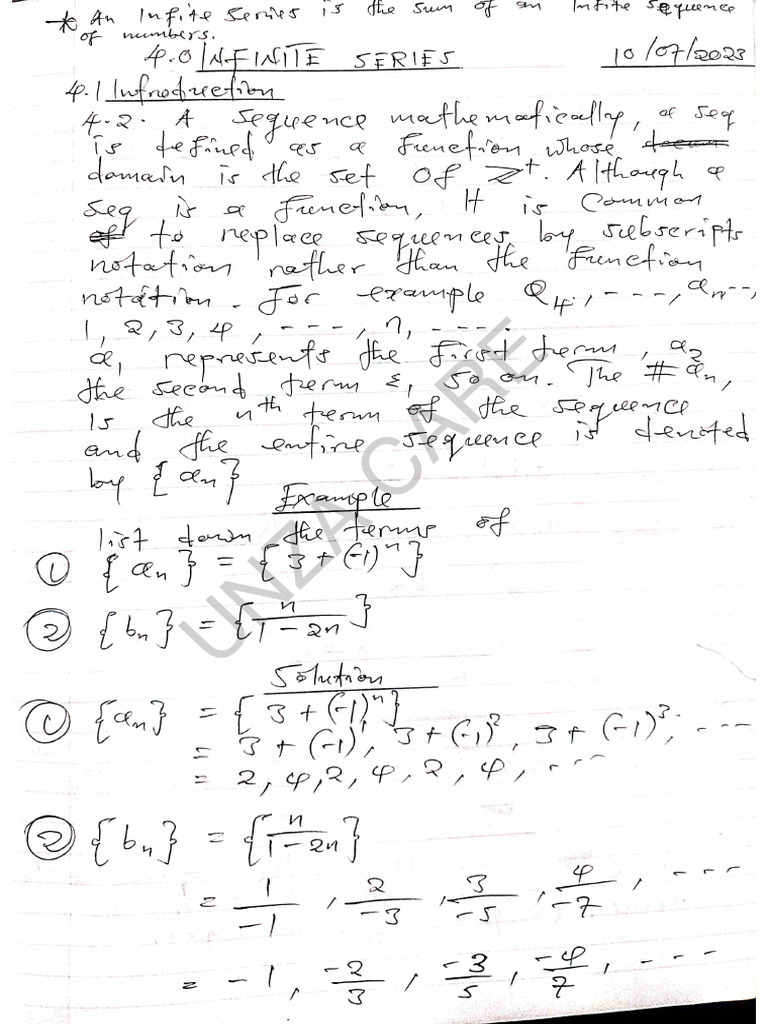 * An Infite Series is the sum of an Infite Sequence
of numbers.
4.0 INFINITE SERIES 10/07/2023
4.1 Introduction
4.2. A sequence mathematically, a seq
is defined as a function whose
domain is the set of Z⁺. Although a
seq is a function, It is Common
to replace sequences by subscripts
notation rather than the function
notation. For example a₄, ----, aₙ--,
1, 2, 3, 4, ----, n, ---.
a₁ represents the first term, a₂
the second term &, so on. The # aₙ,
is the nᵗʰ term of the sequence
and the entire sequence is denoted
by {aₙ}
Example
list down the terms of
① {aₙ} = {3 + (-1)ⁿ}
② {bₙ} = {n/(1-2n)}
Solution
① {aₙ} = {3 + (-1)ⁿ}
= 3 + (-1)¹, 3 + (-1)², 3 + (-1)³, ---
= 2, 4, 2, 4, 2, 4, ---
② {bₙ} = {n/(1-2n)}
= 1/-1, 2/-3, 3/-5, 4/-7, ---
= -1, -2/3, -3/5, -4/7, ---
UNZA CARE